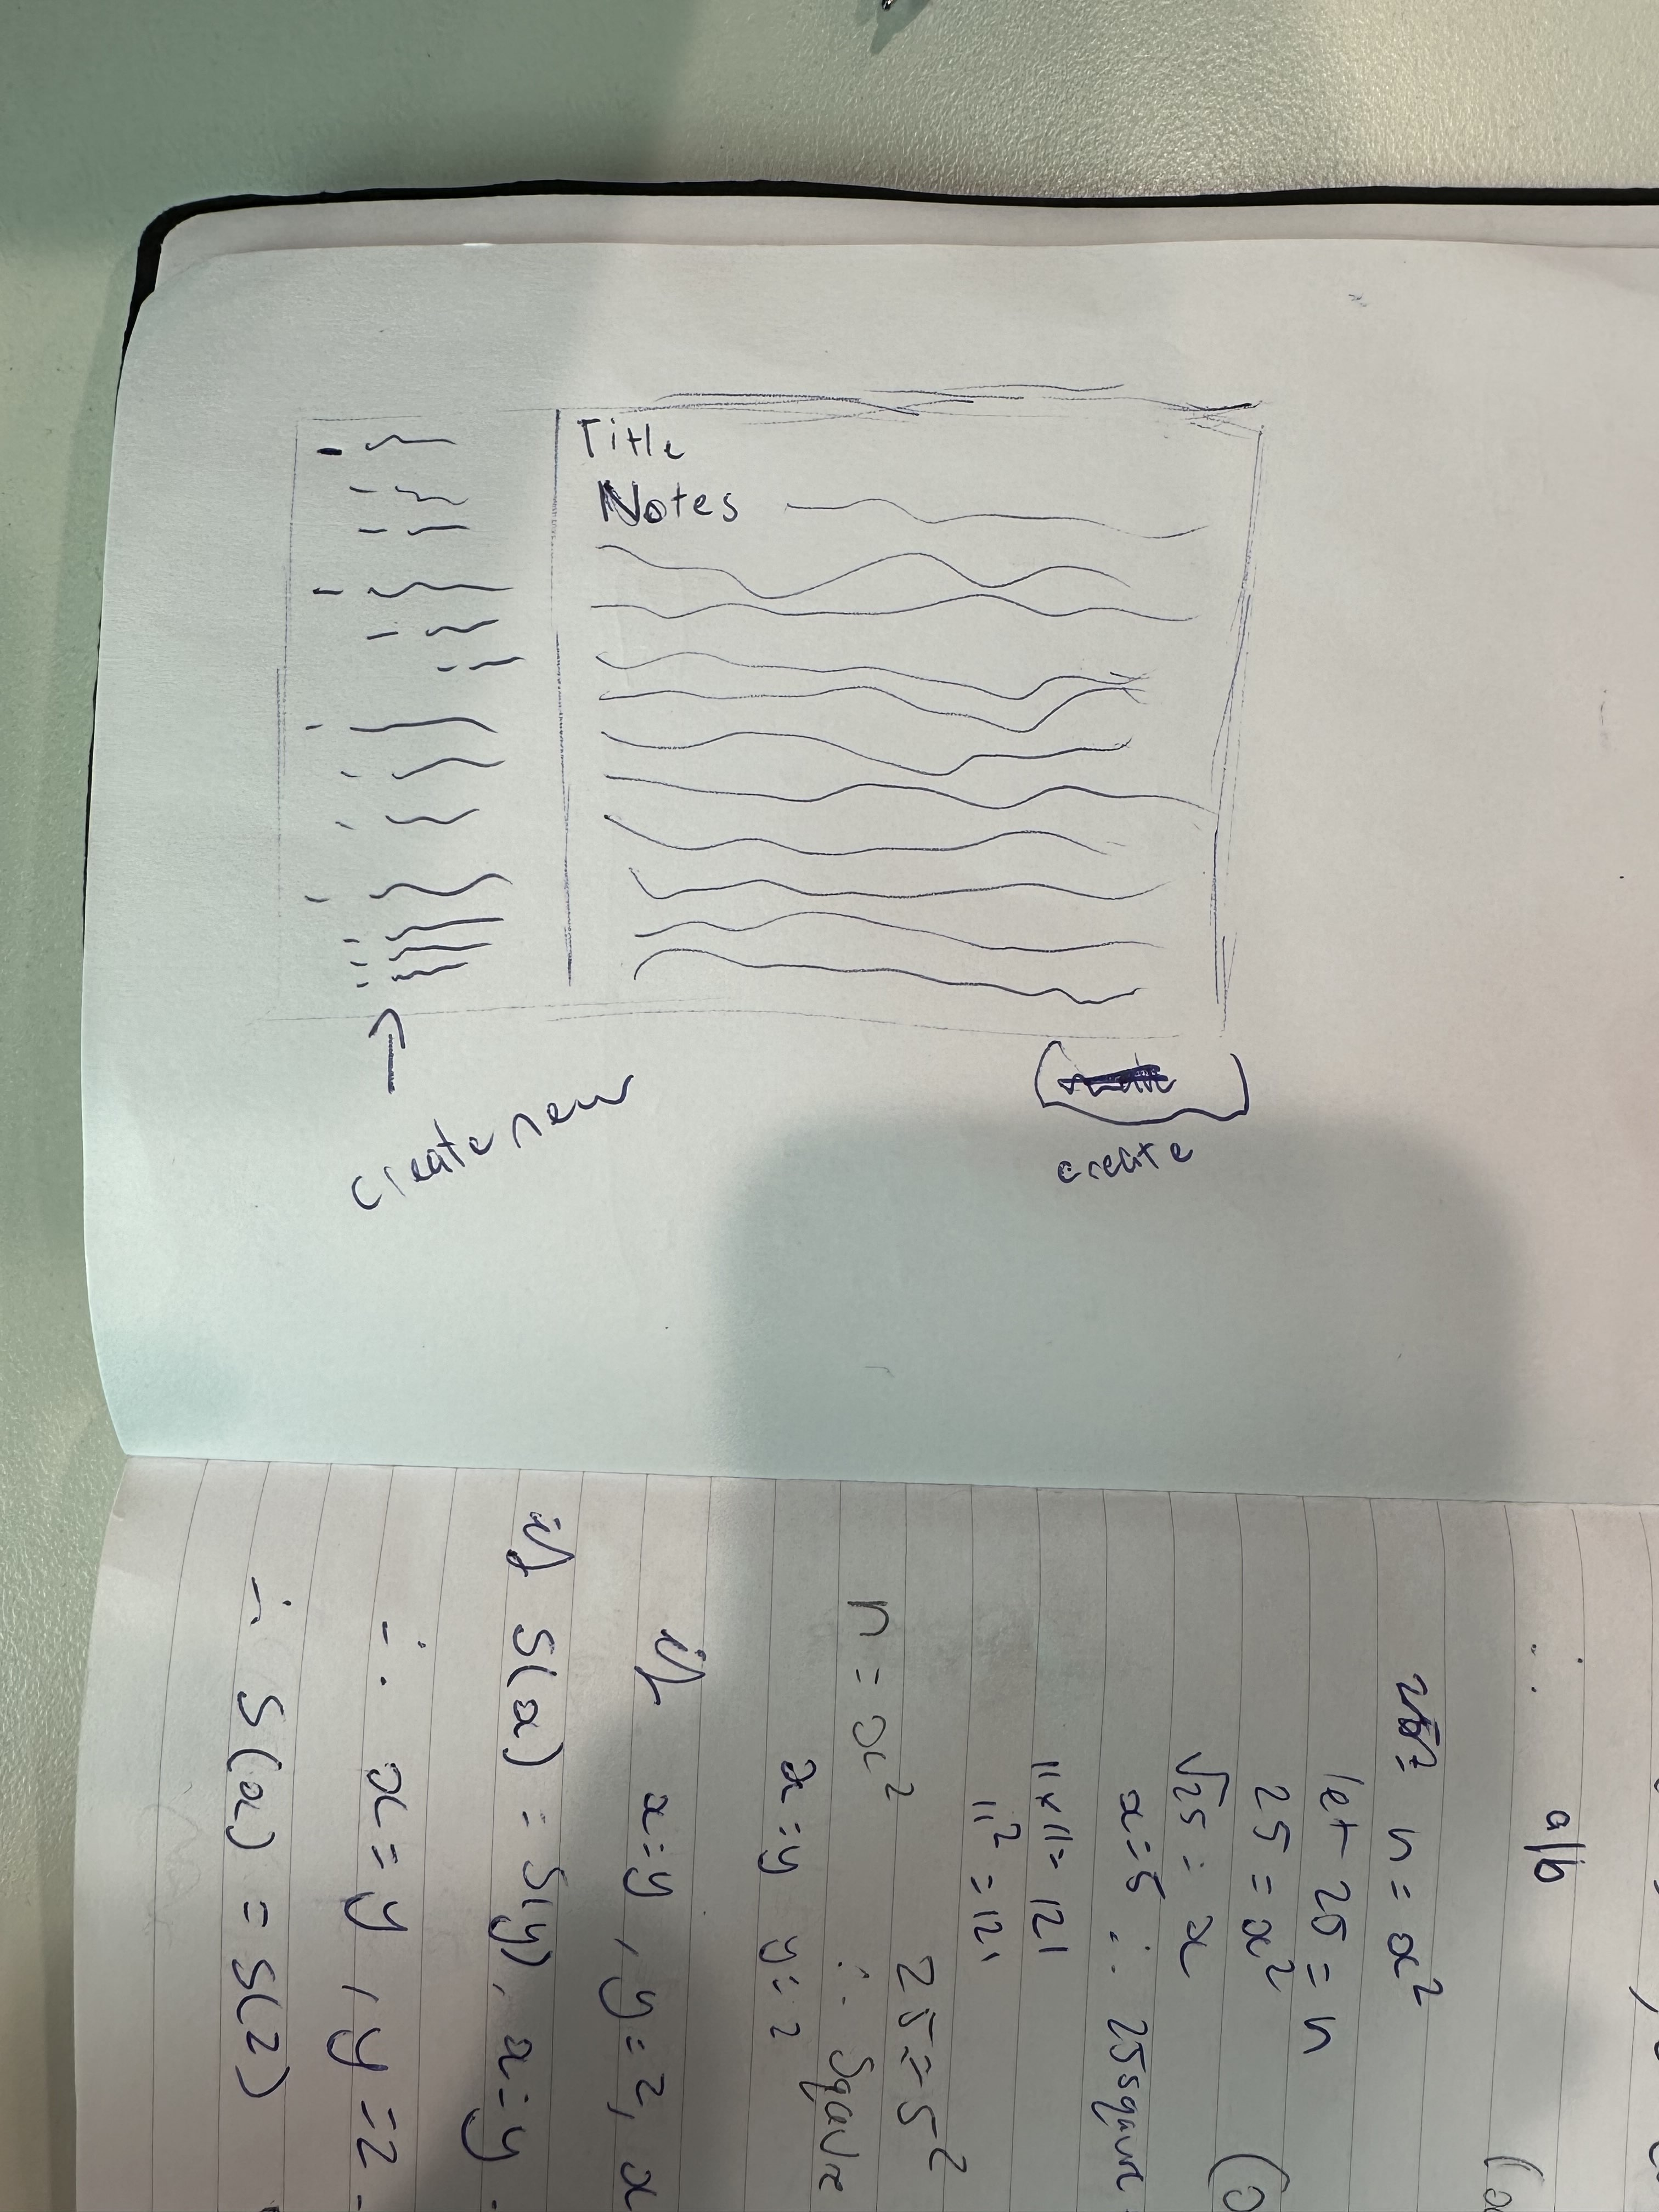 Title
Notes
create new
create
a/b
n = x²
let 25 = n
25 = x²
√25 = x
x = 5 ∴ 25 square
11 x 11 = 121
11² = 121
25 = 5²
n = x² ∴ Square
x = y y = 2
if x = y, y = 2, x
if S(x) = S(y), x = y
∴ x = y, y = 2
∴ S(x) = S(2)